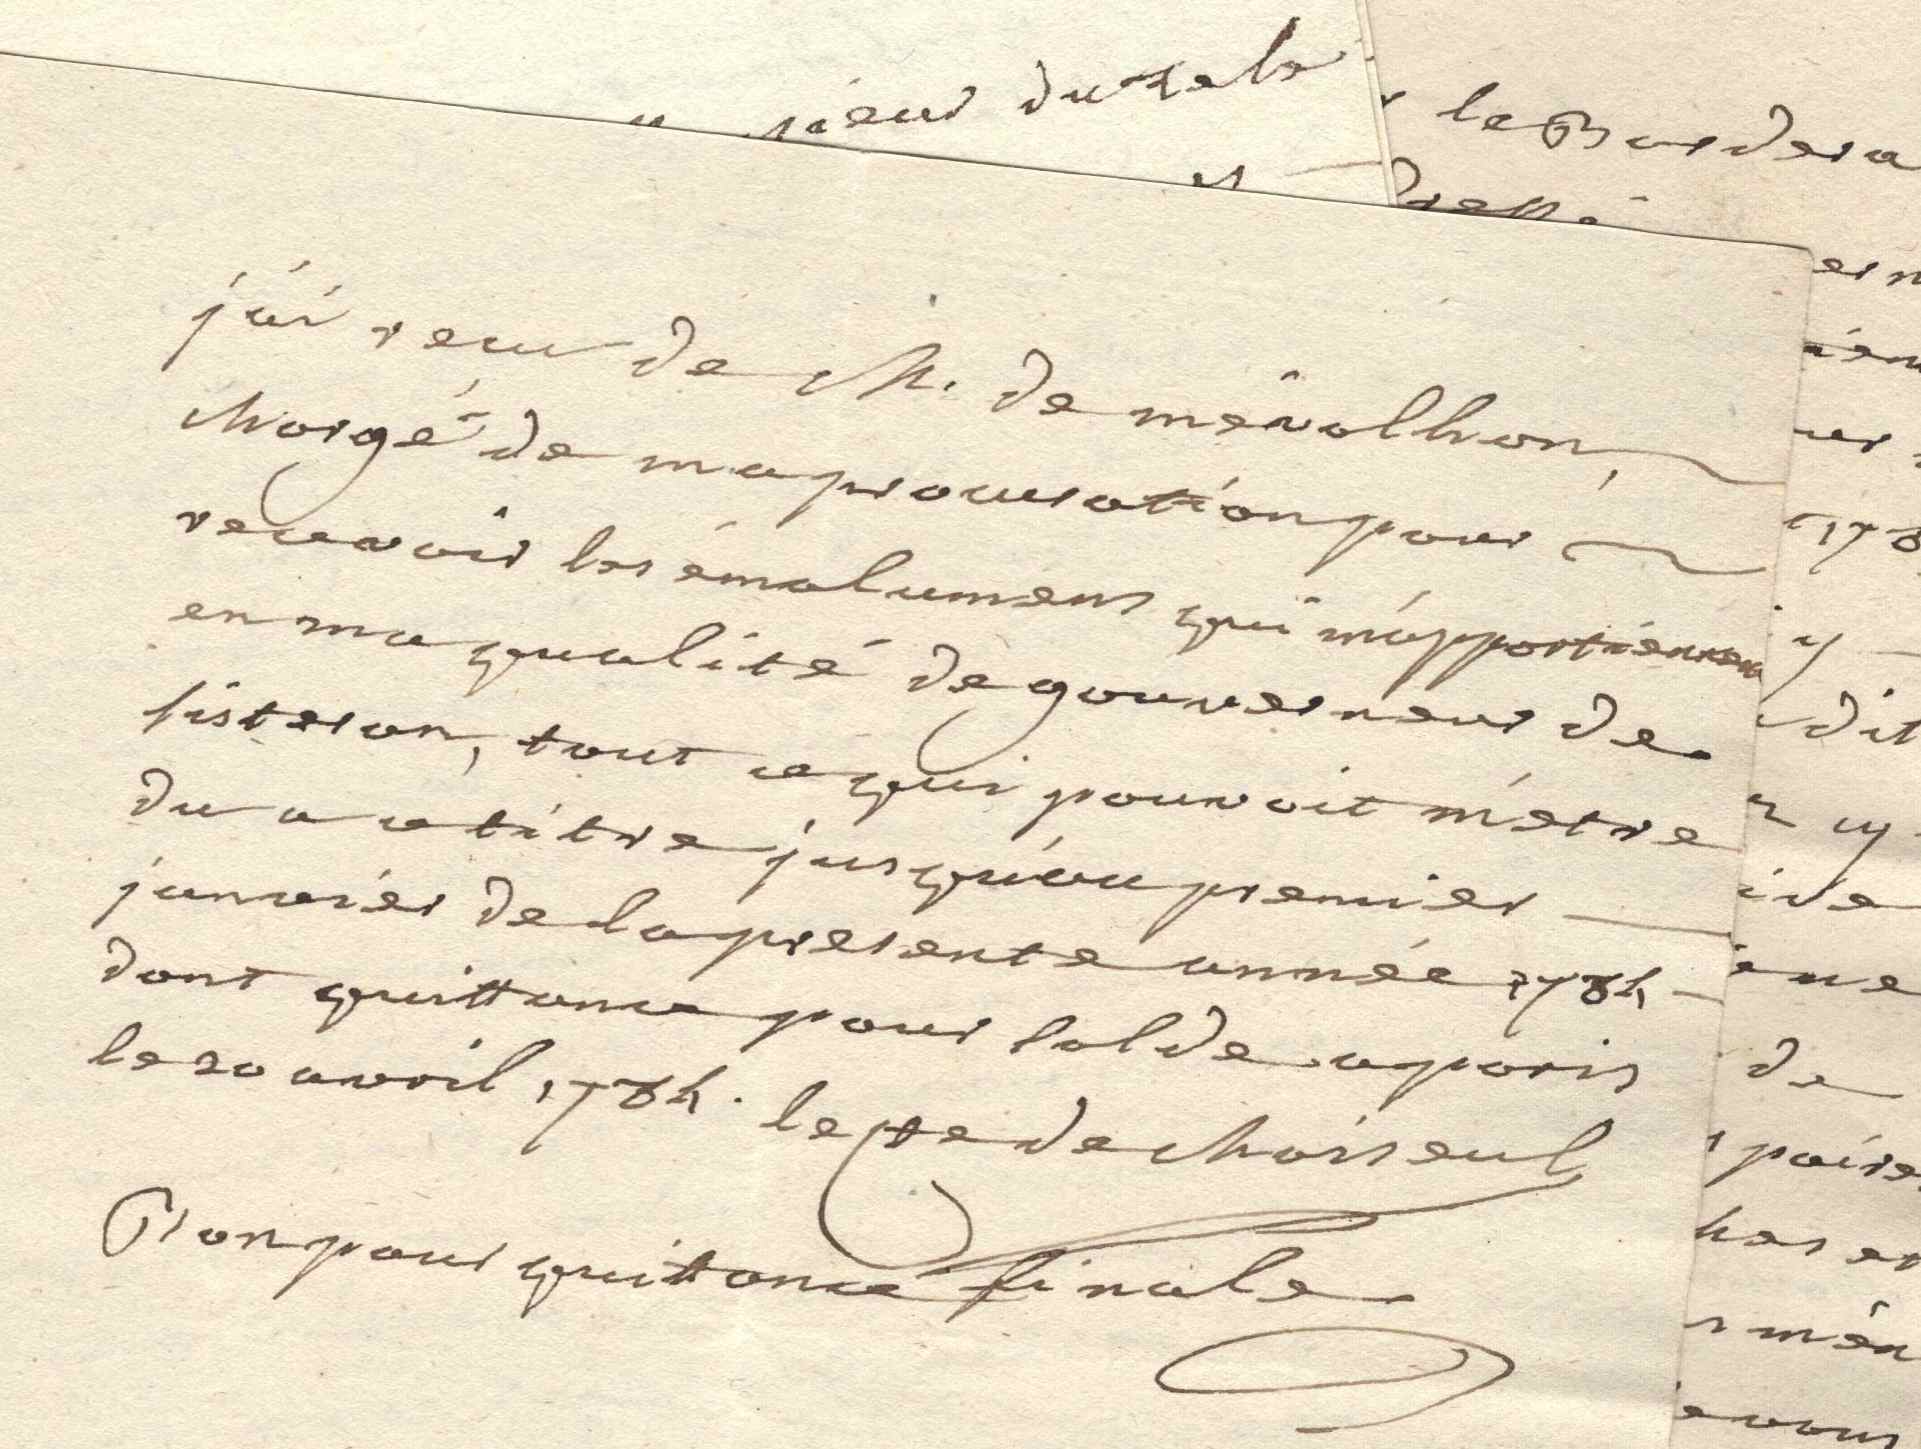 sieur du rele
le Bas de sa
jai recu de M. de mévolhon,
chargé de ma procuration pour
recevoir les émolumens qui m'appartienen
en ma qualité de gouverneur de
sisteron, tout ce qui pouvoit m'etre
du a ce titre jusqu'au premier
janvier de la presente année 1784
dont quittance pour solde a paris
le 20 avril 1784. le cte de choiseul
Bon pour quittance finale
178
dit
de